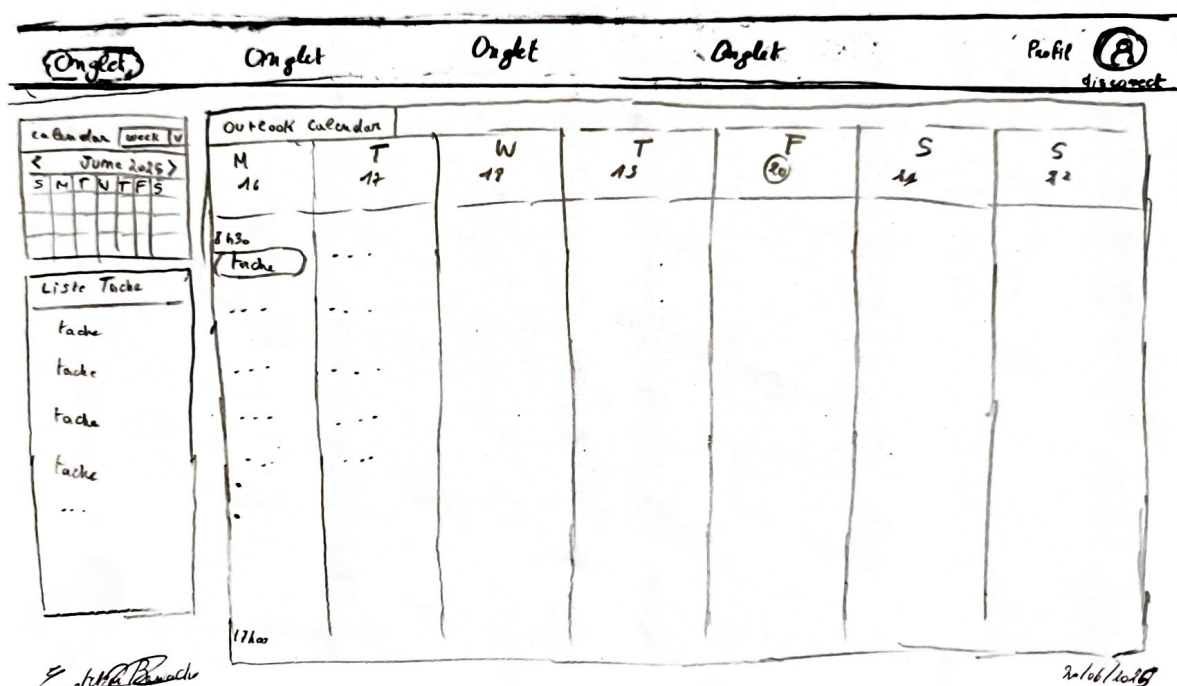 Onglet Onglet Onglet Onglet Profil
disconect
calendar week v
< June 2025 >
S M T W T F S
Liste Tache
tache
tache
tache
tache
...
Outlook Calendar
M T W T F S S
16 17 18 19 20 21 22
8h30
tache ...
... ...
... ...
... ...
... ...
17h00